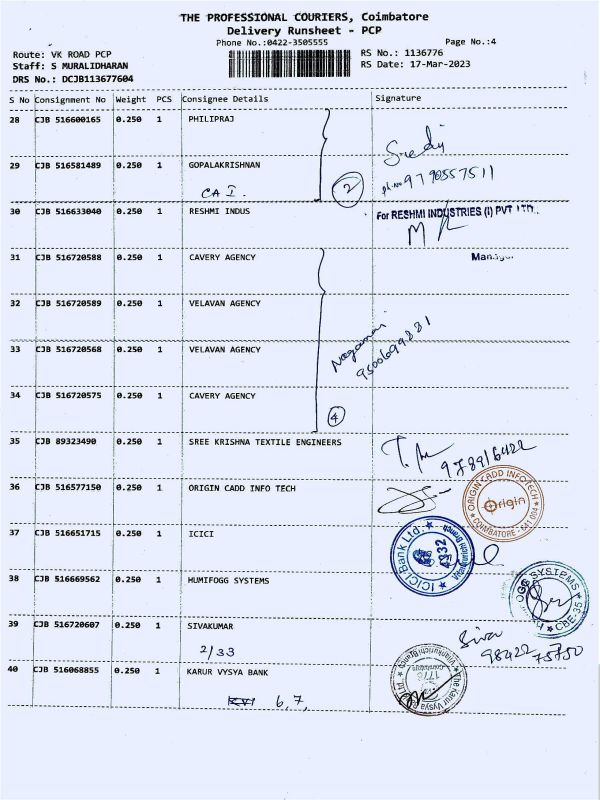 THE PROFESSIONAL COURIERS, Coimbatore
Delivery Runsheet - PCP
Phone No.:0422-3505555 Page No.:4
Route: VK ROAD PCP RS No.: 1136776
Staff: S MURALIDHARAN RS Date: 17-Mar-2023
DRS No.: DCJB113677604
S No Consignment No Weight PCS Consignee Details Signature
28 CJB 516600165 0.250 1 PHILIPRAJ
29 CJB 516581489 0.250 1 GOPALAKRISHNAN
CAI. 2 ph.no 9790557511
30 CJB 516633040 0.250 1 RESHMI INDUS For RESHMI INDUSTRIES (I) PVT LTD.
31 CJB 516720588 0.250 1 CAVERY AGENCY Manager
32 CJB 516720589 0.250 1 VELAVAN AGENCY
33 CJB 516720568 0.250 1 VELAVAN AGENCY
9500699881
34 CJB 516720575 0.250 1 CAVERY AGENCY
4
35 CJB 89323490 0.250 1 SREE KRISHNA TEXTILE ENGINEERS
36 CJB 516577150 0.250 1 ORIGIN CADD INFO TECH
ORIGIN CADD INFOTECH
Origin
COIMBATORE - 641 004
37 CJB 516651715 0.250 1 ICICI
ICICI Bank Ltd.
4932
38 CJB 516669562 0.250 1 HUMIFOGG SYSTEMS
OGG SYSTEMS
CBE-35
39 CJB 516720607 0.250 1 SIVAKUMAR
2/33 Siva
98422 75750
40 CJB 516068855 0.250 1 KARUR VYSYA BANK
The Karur Vysya
1778
6, 7,